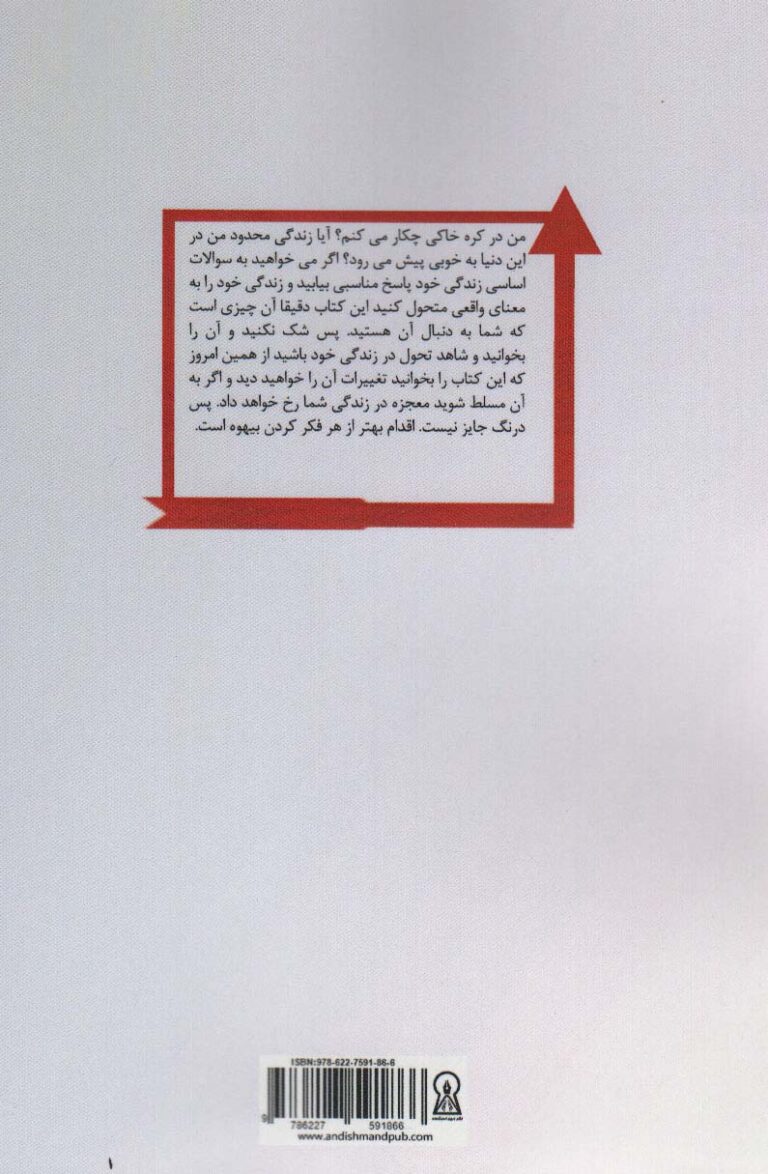 من در کره خاکی چکار می کنم؟ آیا زندگی محدود من در
این دنیا به خوبی پیش می رود؟ اگر می خواهید به سوالات
اساسی زندگی خود پاسخ مناسبی بیابید و زندگی خود را به
معنای واقعی متحول کنید این کتاب دقیقا آن چیزی است
که شما به دنبال آن هستید. پس شک نکنید و آن را
بخوانید و شاهد تحول در زندگی خود باشید از همین امروز
که این کتاب را بخوانید تغییرات آن را خواهید دید و اگر به
آن مسلط شوید معجزه در زندگی شما رخ خواهد داد. پس
درنگ جایز نیست. اقدام بهتر از هر فکر کردن بیهوه است.
ISBN:978-622-7591-86-6
9 786227 591866
www.andishmandpub.com
۱